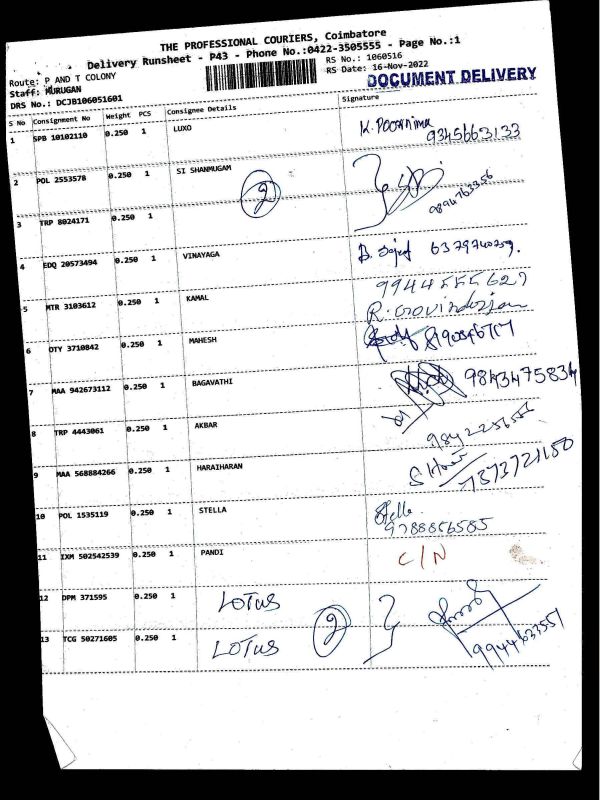 THE PROFESSIONAL COURIERS, Coimbatore
Delivery Runsheet - P43 - Phone No.:0422-3505555 - Page No.:1
Route: P AND T COLONY
RS No.: 1060516
Staff: MURUGAN
RS Date: 16-Nov-2022
DOCUMENT DELIVERY
DRS No.: DCJB106051601
S No Consignment No Weight PCS Consignee Details Signature
1 SPB 10102110 0.250 1 LUXO K. Poornima
9345663133
2 POL 2553578 0.250 1 SI SHANMUGAM
2
3 TRP 8024171 0.250 1
4 EDQ 20573494 0.250 1 VINAYAGA
5 MTR 3103612 0.250 1 KAMAL 9944555627
R. Govindorjan
6 DTY 3710842 0.250 1 MAHESH
7 MAA 942673112 0.250 1 BAGAVATHI 9843475834
8 TRP 4443061 0.250 1 AKBAR
9 MAA 568884266 0.250 1 HARAIHARAN 7373721150
10 POL 1535119 0.250 1 STELLA Stella
9788856585
11 IXM 502542539 0.250 1 PANDI C/N
12 DPM 371595 0.250 1 LOTUS
2
13 TCG 50271605 0.250 1 LOTUS 9944633551